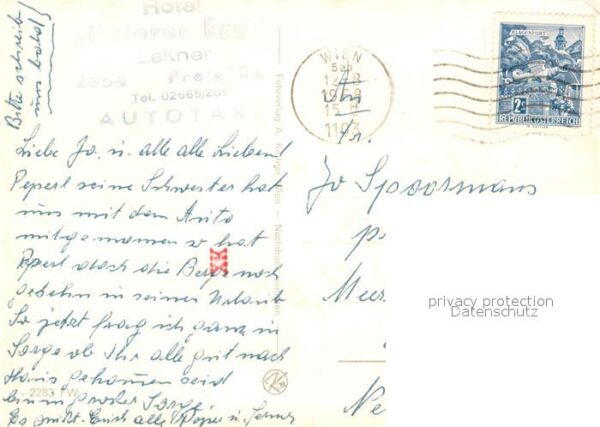 Bitte schreib
uns bald!
Hotel
Leitner
2654 Prein/Rax
Tel. 02665/205
AUTOTAX
Liebe Jo, u. alle alle Lieben!
Peperl seine Schwester hat
uns mit dem Auto
mitgenommen so hat
Peperl doch die Berge noch
gesehn in seinem Urlaub
So jetzt frag ich ganz in
Sorge ob Ihr alle gut nach
Haus gekommen seid
in großer Sorge
Es grüßt Euch alle Peperl u.
2283 FW
WIEN
15
1103
KLAGENFURT
2 S
REPUBLIK ÖSTERREICH
Jo Spoormans
Meer
Ne
privacy protection
Datenschutz